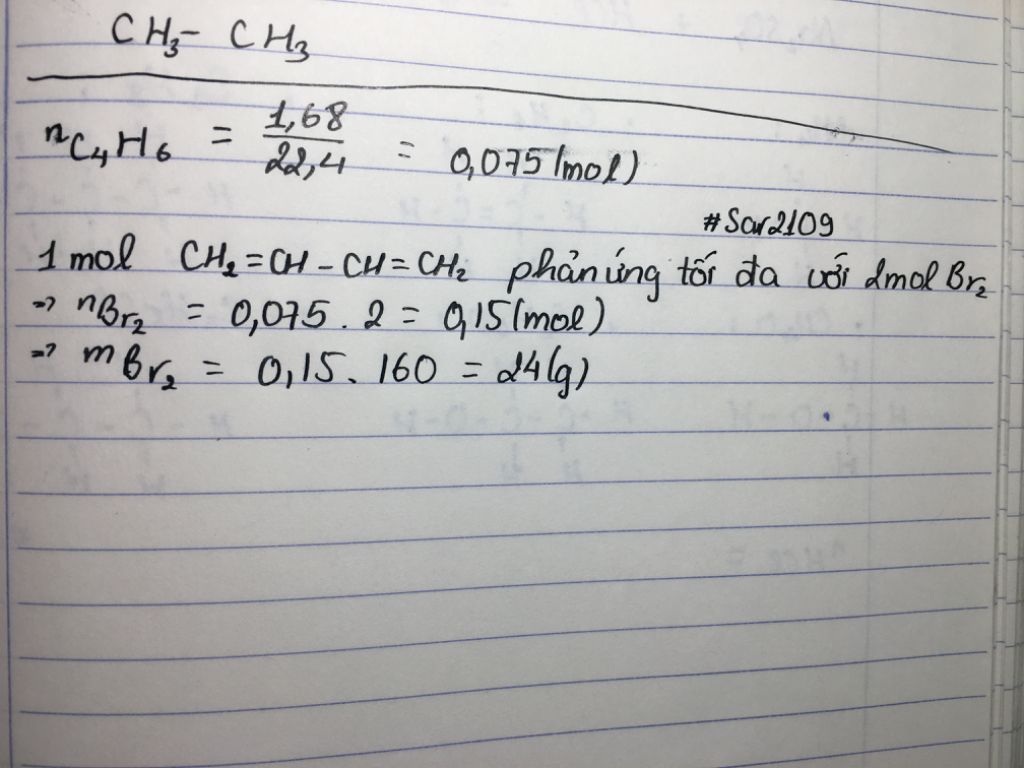 CH3- CH3
nC4H6 = 1,68/22,4 = 0,075 (mol)
#Sar2109
1 mol CH2=CH-CH=CH2 phản ứng tối đa với 2mol Br2
=> nBr2 = 0,075 . 2 = 0,15 (mol)
=> mBr2 = 0,15 . 160 = 24 (g)